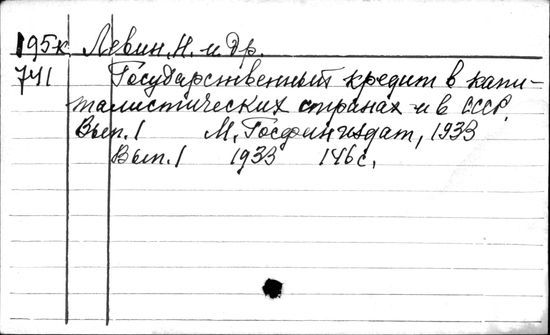 195к Левин, Н. и др.
741 Государственный кредит в капи-
талистических странах и в СССР.
Вып. 1 М, Госфиниздат, 1933
Вып. 1 1933 146 с.